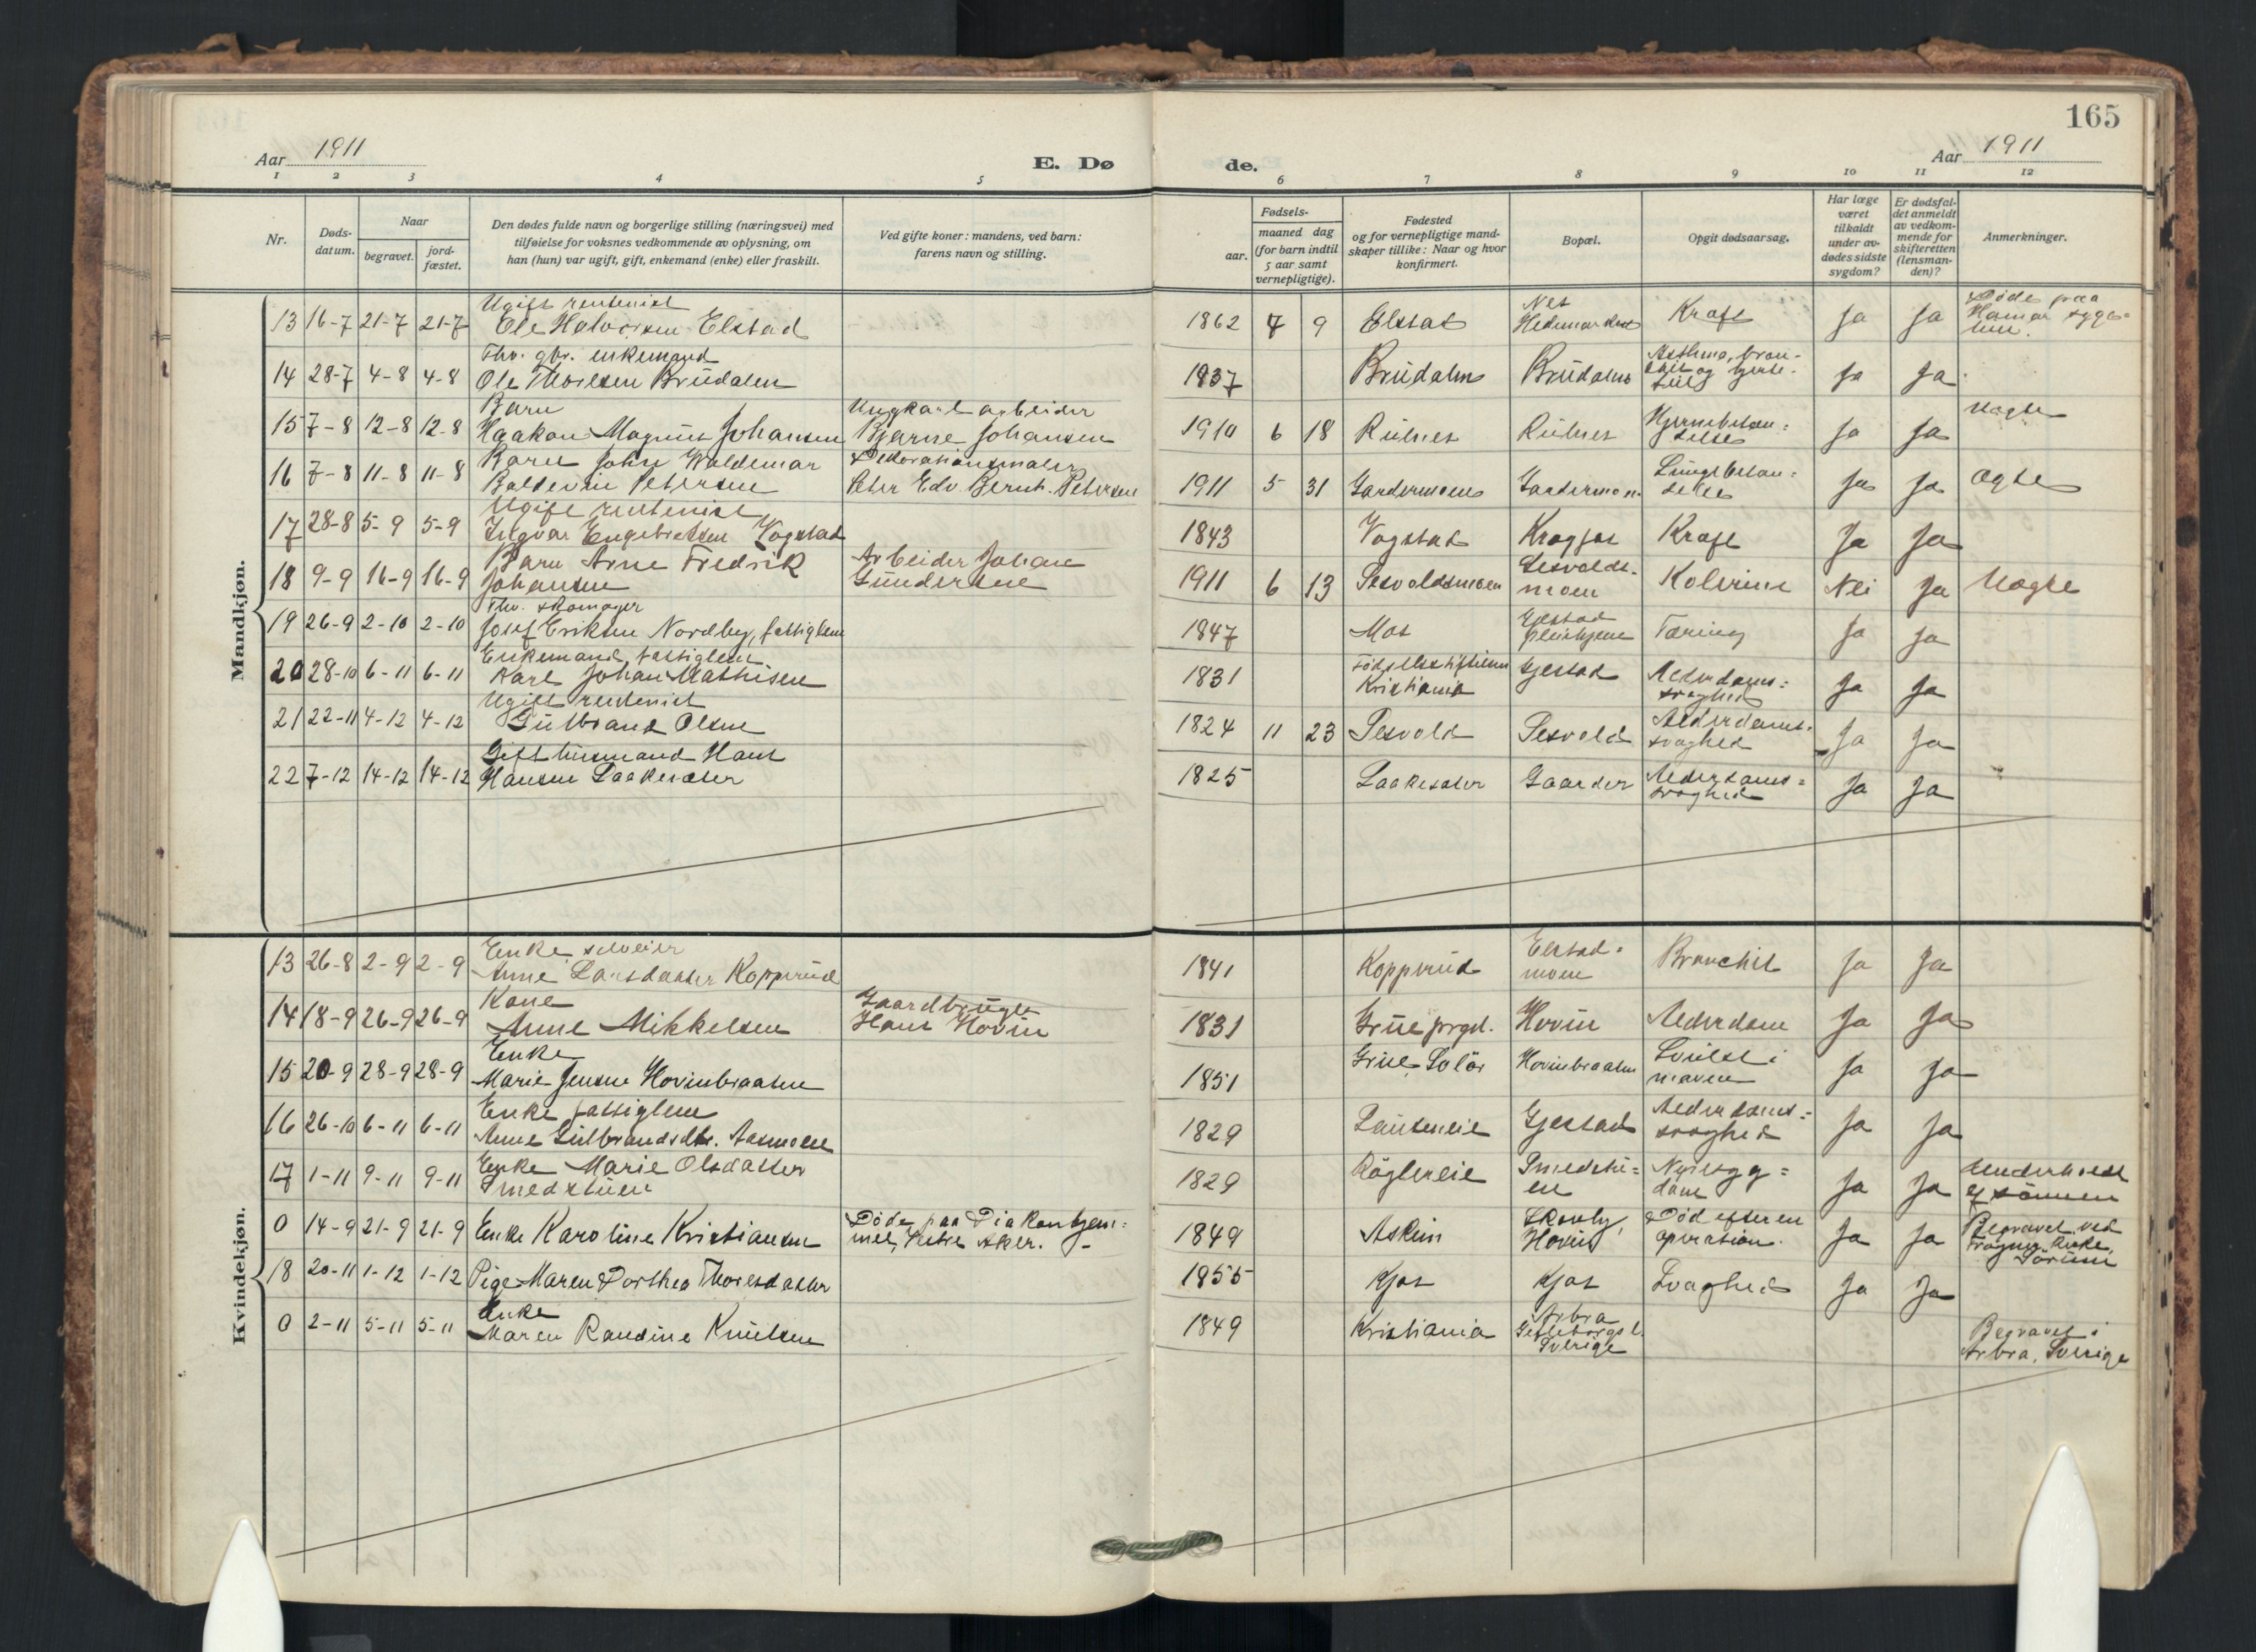 165
Aar 1911
E. Dø
de.
Aar 1911
1 2 3 4 5 6 7 8 9 10 11 12
Nr.
Døds-
datum.
Naar
begravet.
jord-
fæstet.
Den dødes fulde navn og borgerlige stilling (næringsvei) med
tilføielse for voksnes vedkommende av oplysning, om
han (hun) var ugift, gift, enkemand (enke) eller fraskilt.
Ved gifte koner: mandens, ved barn:
farens navn og stilling.
Fødsels-
aar.
maaned dag
(for barn indtil
5 aar samt
vernepligtige).
Fødested
og for vernepligtige mand-
skaper tillike: Naar og hvor
konfirmert.
Bopæl.
Opgit dødsaarsag.
Har læge
været
tilkaldt
under av-
dødes sidste
sygdom?
Er dødsfal-
det anmeldt
av vedkom-
mende for
skifteretten
(lensman-
den)?
Anmerkninger.
Mandkjøn.
Ugift rentenist
13 16-7 21-7 21-7 Ole Halvorsen Elstad 1862 7 9 Elstad
Nes
Hedemarken
Kræft Ja Ja
Døde paa
Hamar syge-
hus.
Fhv. gbr. enkemand
14 28-7 4-8 4-8 Ole Thoresen Brudalen 1837 Brudalen Brudalen
Asthma, bron-
kit og hjerte-
feil
Ja Ja
Barn
15 7-8 12-8 12-8 Haakon Magnus Johansen
Ungkarl arbeider
Bjarne Johansen
1910 6 18 Rulnes Rulnes
Hjernebetæn-
delse
Ja Ja Uægte
16 7-8 11-8 11-8 Barn John Waldemar
Baldevin Petersen
Dekorationsmaler
Peter Edv. Bernt. Petersen
1911 5 31 Gardermoen Gardermoen
Lungebetæn-
delse
Ja Ja Ægte
Ugift rentenist
17 28-8 5-9 5-9 Ingvar Engebretsen Vogstad 1843 Vogstad Kragjos Kræft Ja Ja
18 9-9 16-9 16-9 Barn Arne Fredrik
Johansen
Arbeider Johan
Gundersen
1911 6 13 Jesvoldsmoen
Jesvolds-
moen
Kolerine Nei Ja Uægte
Fhv. skomager
19 26-9 2-10 2-10 Josef Eriksen Nordby, fattiglem 1847 Mos
Gjestad
pleiehjem
Tæring Ja Ja
Enkemand, fattiglem
20 28-10 6-11 6-11 Karl Johan Mathisen 1831
Fødselsstiftelsen
Kristiania
Gjestad
Alderdoms-
svaghed
Ja Ja
Ugift rentenist
21 22-11 4-12 4-12 Gulbrand Olsen 1824 11 23 Jesvold Jesvold
Alderdoms-
svaghed
Ja Ja
Gift husmand Hans
22 7-12 14-12 14-12 Hansen Laakesæter 1825 Laakesæter Gaarder
Alderdoms-
svaghed
Ja Ja
Kvindekjøn.
Enke selveier
13 26-8 2-9 2-9 Anne Larsdatter Kopperud 1841 Kopperud
Elstad-
moen
Bronchit Ja Ja
Kone
14 18-9 26-9 26-9 Anne Mikkelsen
Gaardbruger
Hans Hovin
1831 Grue prgd. Hovin Alderdom Ja Ja
Enke
15 20-9 28-9 28-9 Marie Jensen Hovinbraaten 1851 Grue Solør Hovinbraaten
Svulst i
maven
Ja Ja
Enke fattiglem
16 26-10 6-11 6-11 Anne Gulbrandsdtr. Aasmoen 1829 Gjestad
Alderdoms-
svaghed
Ja Ja
17 1-11 9-11 9-11 Enke Marie Olsdatter
Smedstuen
1829 Røglereie
Smedstu-
en
Nyresyg-
dom
Ja Ja
Underholdt
af sønnen
0 14-9 21-9 21-9 Enke Karoline Kristiansen
Døde paa Diakonhjem-
met, Vestre Aker.
1849 Askim
Skovly,
Hovin
Død efter en
operation.
Ja Ja
Begravet ved
Frogner kirke,
Sørum
18 20-11 1-12 1-12 Pige Maren Dorthea Thoresdatter 1855 Kjos Kjos Svaghed Ja Ja
Enke
0 2-11 5-11 5-11 Maren Randine Knutsen 1849 Kristiania
Arbra
Gefleborgs l.
Sverige
Begravet i
Arbra, Sverige